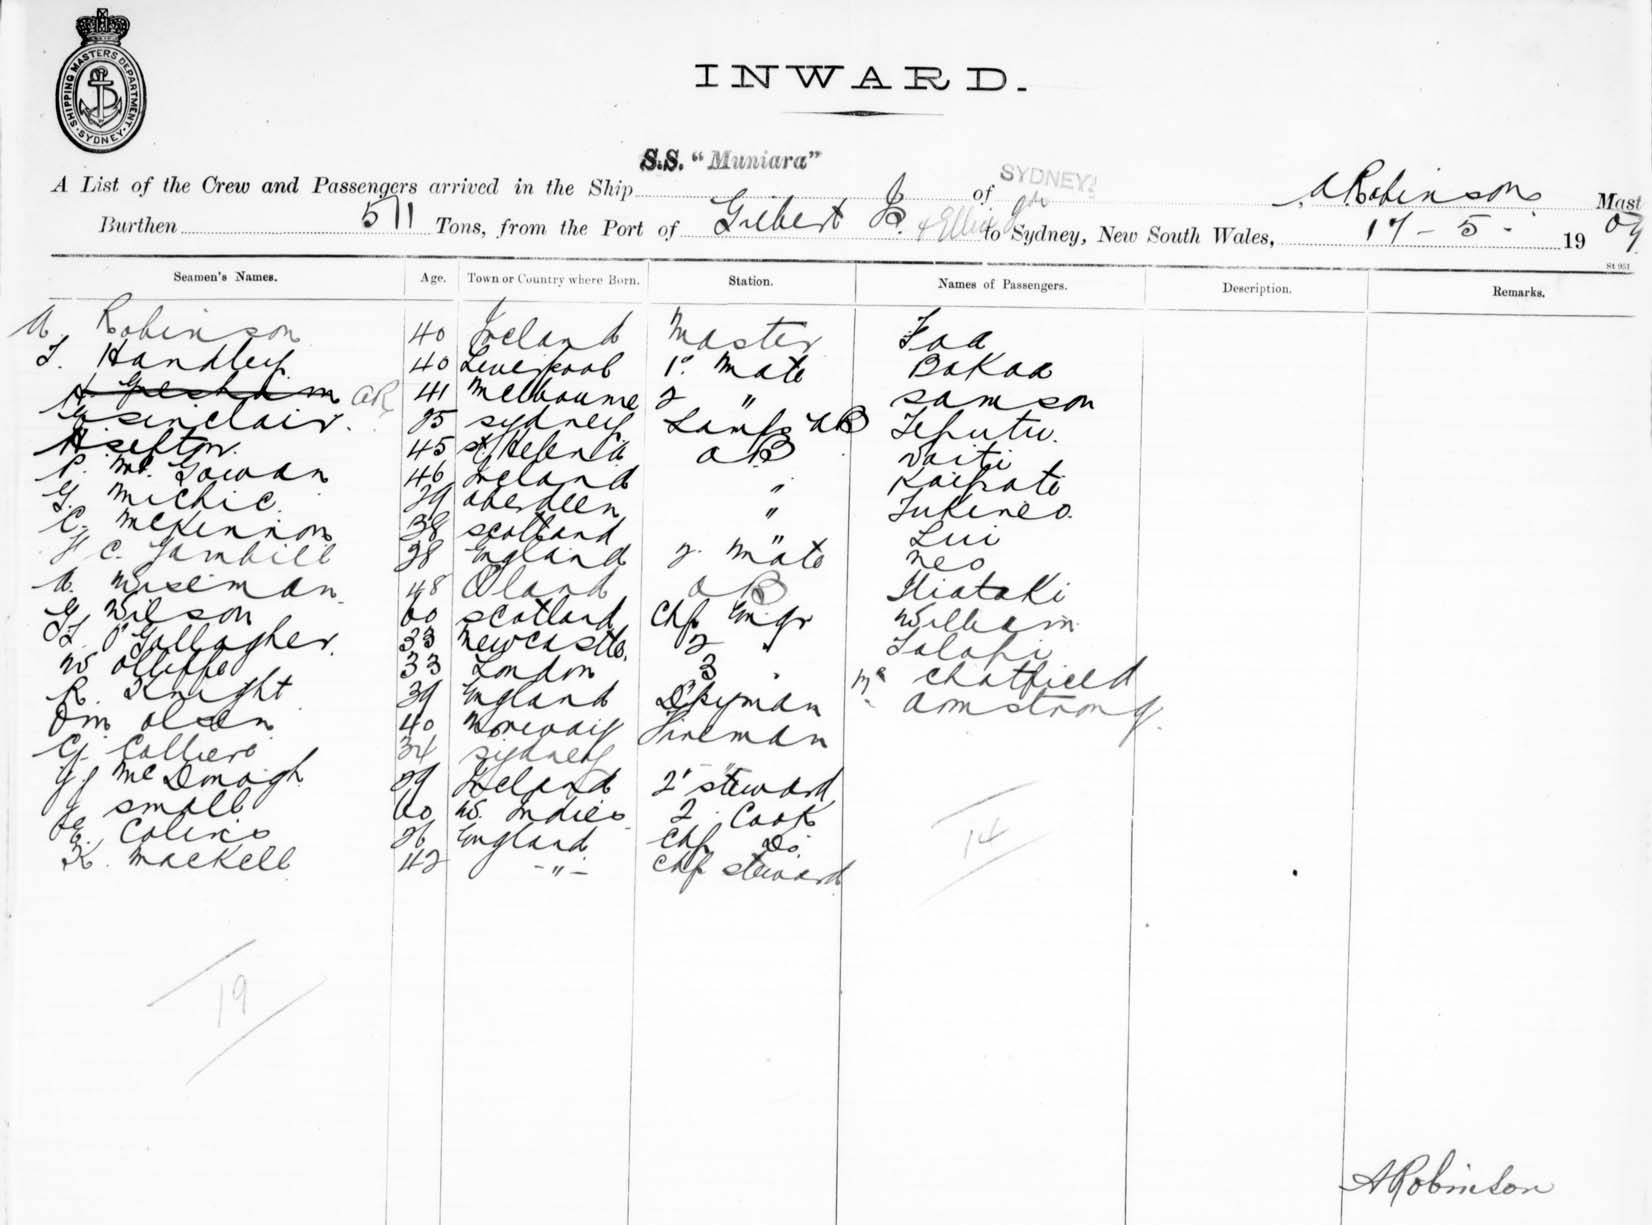 SHIPPING MASTERS DEPARTMENT
SYDNEY
INWARD.
S.S. "Muniara" SYDNEY
A List of the Crew and Passengers arrived in the Ship of A Robinson Mast
Burthen 511 Tons, from the Port of Gilbert Is. & Ellice to Sydney, New South Wales, 17 - 5 - 1909
St 951
Seamen's Names. Age. Town or Country where Born. Station. Names of Passengers. Description. Remarks.
A. Robinson 40 Ireland Master Faa
T. Handley 40 Liverpool 1º Mate Bakaa
H. Gresham AR 41 Melbourne 2 " Samson
G Sinclair 25 Sydney Lamps AB Teputu.
H Sefton 45 St Helena AB Vaiti
P. McGowan 46 Ireland " Kaipati
G. Michie 29 Aberdeen " Tukineo
C. McKinnon 38 Scotland " Lui
H C. Gambill 28 England 2 Mate Neo
A. Wiseman 48 Oland AB Iliataki
G Wilson 60 Scotland Chf Engr William
T. O'Gallagher 33 Newcastle 2 " Talapi
W Olliffe 33 London 3 " Mr Chatfield
R. Knight 39 England Dkyman " Armstrong
Om Olsen 40 Norway Fireman
G Collier 34 Sydney "
J J McDonagh 29 Ireland 2' Steward
J Small 60 W. Indies 2 Cook
E. Colins 26 England Chf Do
K. Mackell 42 - " - Chf Steward
14
19
A Robinson